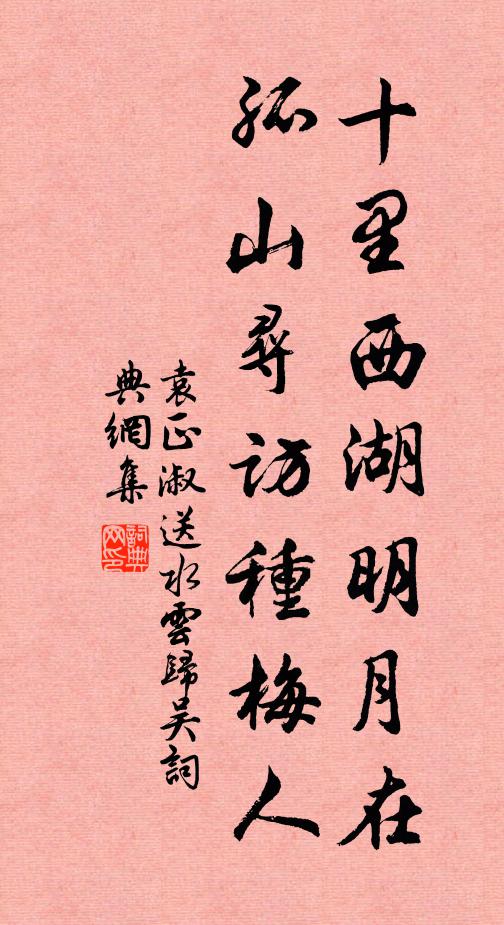 十里西湖明月在
孤山尋訪種梅人
袁正淑送水雲歸吴詞
典網集
詞典網印